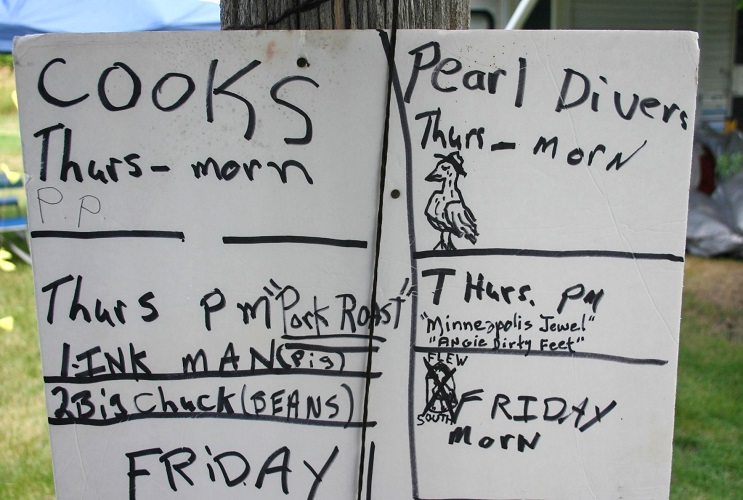 COOKS
Thurs- morn
P.P.
Thurs PM "Pork Roast"
1. INK MAN (Pig)
2 Big Chuck (BEANS)
FRIDAY
Pearl Divers
Thurs- MORN
THurs. PM
"Minneapolis Jewel"
"Angie Dirty Feet"
FLEW
SOUTH
FRIDAY
MORN